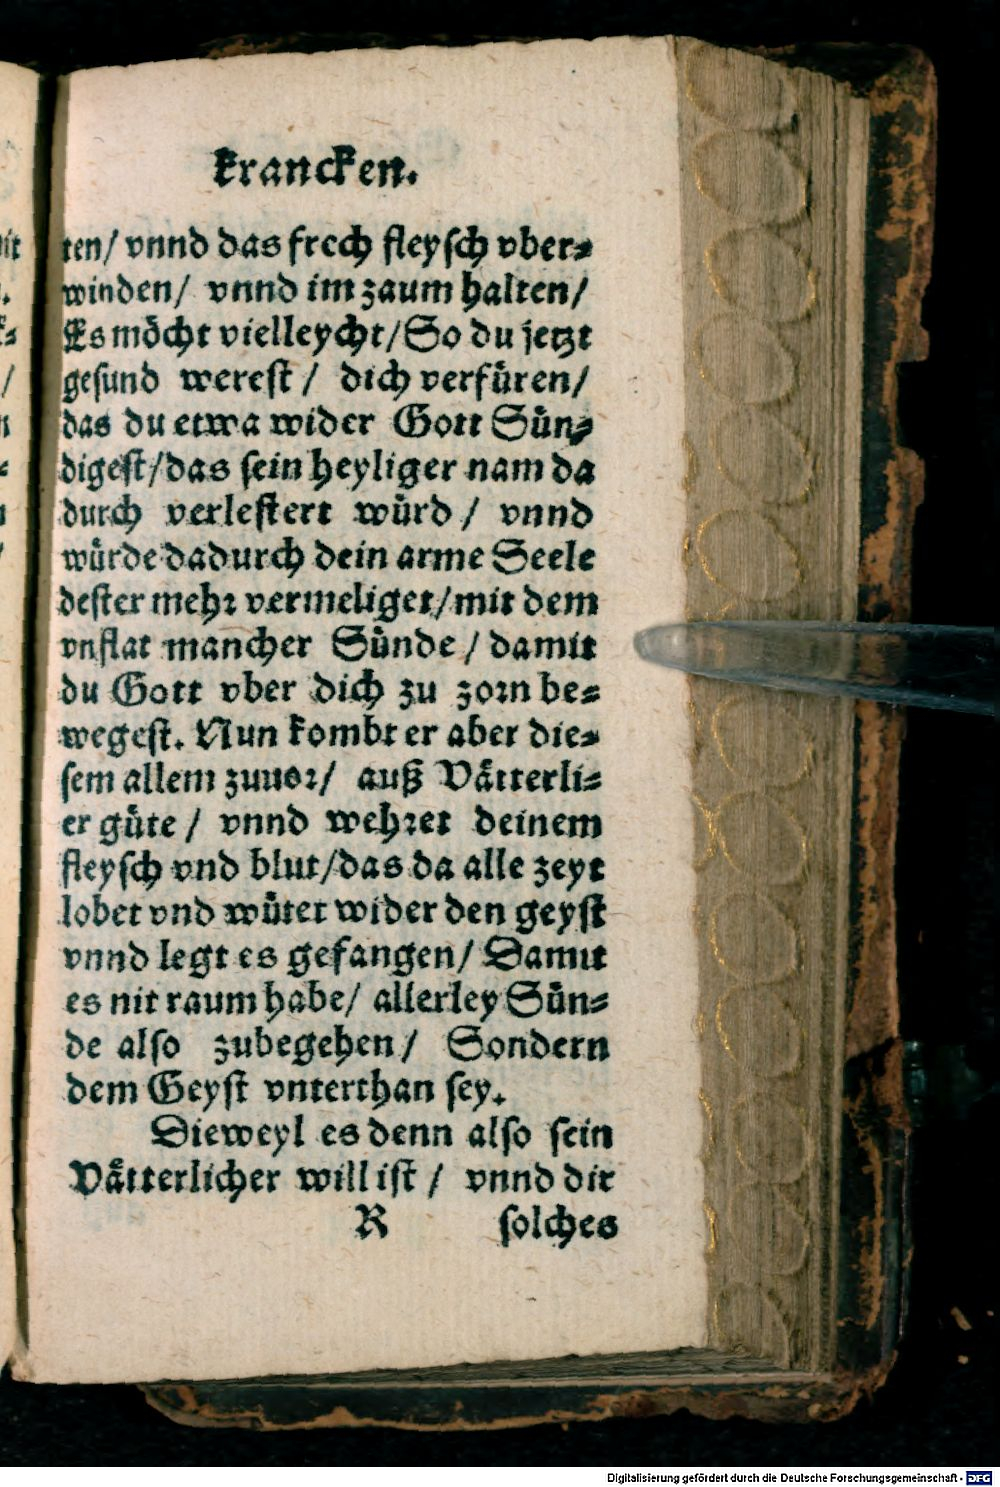 krancken.
ten/ vnnd das frech fleysch vber⸗
winden/ vnnd im zaum halten/
Es möcht vielleycht/So du jetzt
gesund werest / dich verfüren/
das du etwa wider Gott Sün⸗
digest/das sein heyliger nam da
durch verlestert würd / vnnd
würde dadurch dein arme Seele
dester mehr vermeliget/mit dem
vnflat mancher Sünde / damit
du Gott vber dich zu zorn be⸗
wegest. Nun kombt er aber die⸗
sem allem zuuor/ auß Vätterli⸗
er güte / vnnd wehret deinem
fleysch vnd blut/das da alle zeyt
lobet vnd wütet wider den geyst
vnnd legt es gefangen/ Damit
es nit raum habe/ allerley Sün⸗
de also zubegehen/ Sondern
dem Geyst vnterthan sey.
Dieweyl es denn also sein
Vätterlicher will ist / vnnd dir
R solches
Digitalisierung gefördert durch die Deutsche Forschungsgemeinschaft - DFG